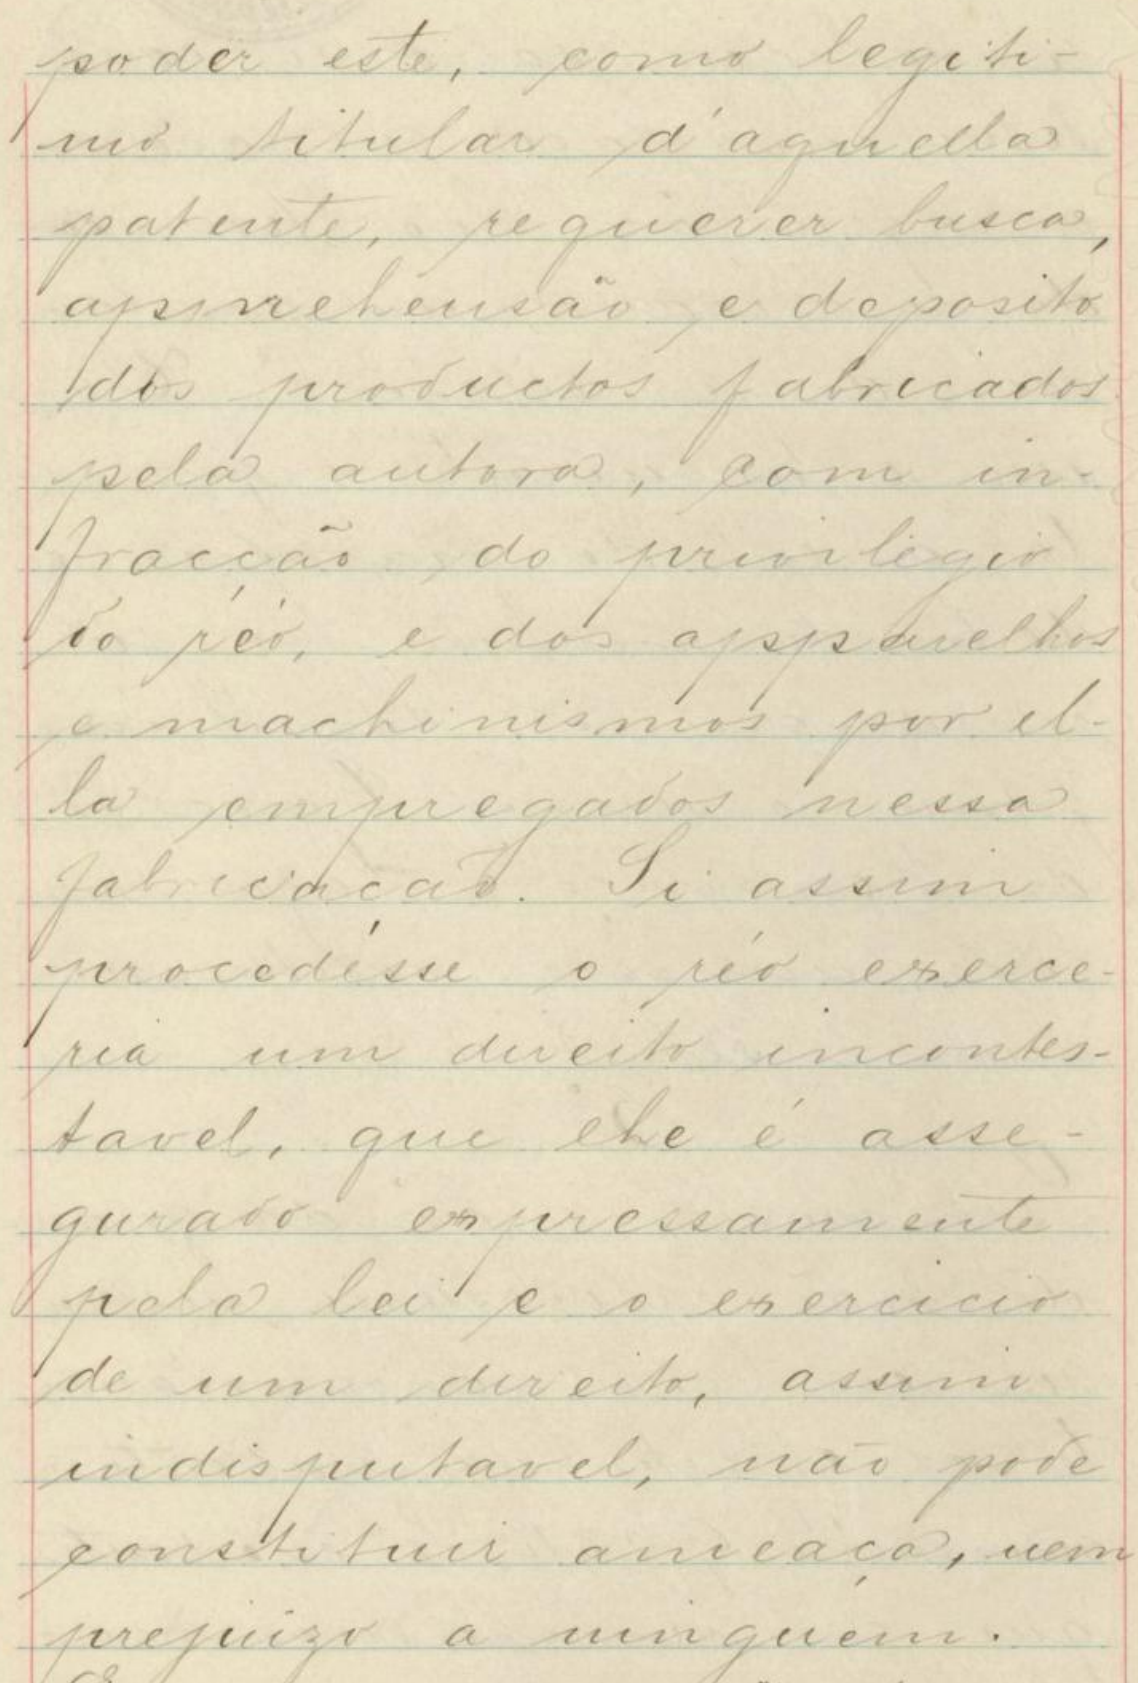 poder este, como legiti-
mo titular d'aquella
patente, requerer busca,
apprehensão e deposito
dos productos fabricados
pela autora, com in-
fracção do privilegio
do réo, e dos apparelhos
e machinismos por el-
la empregados nessa
fabricação. Si assim
procedésse o réo exerce-
ria um direito incontes-
tavel, que lhe é asse-
gurado expressamente
pela lei e o exercicio
de um direito, assim
indisputavel, não pode
constituir ameaça, nem
prejuizo a ninguem.